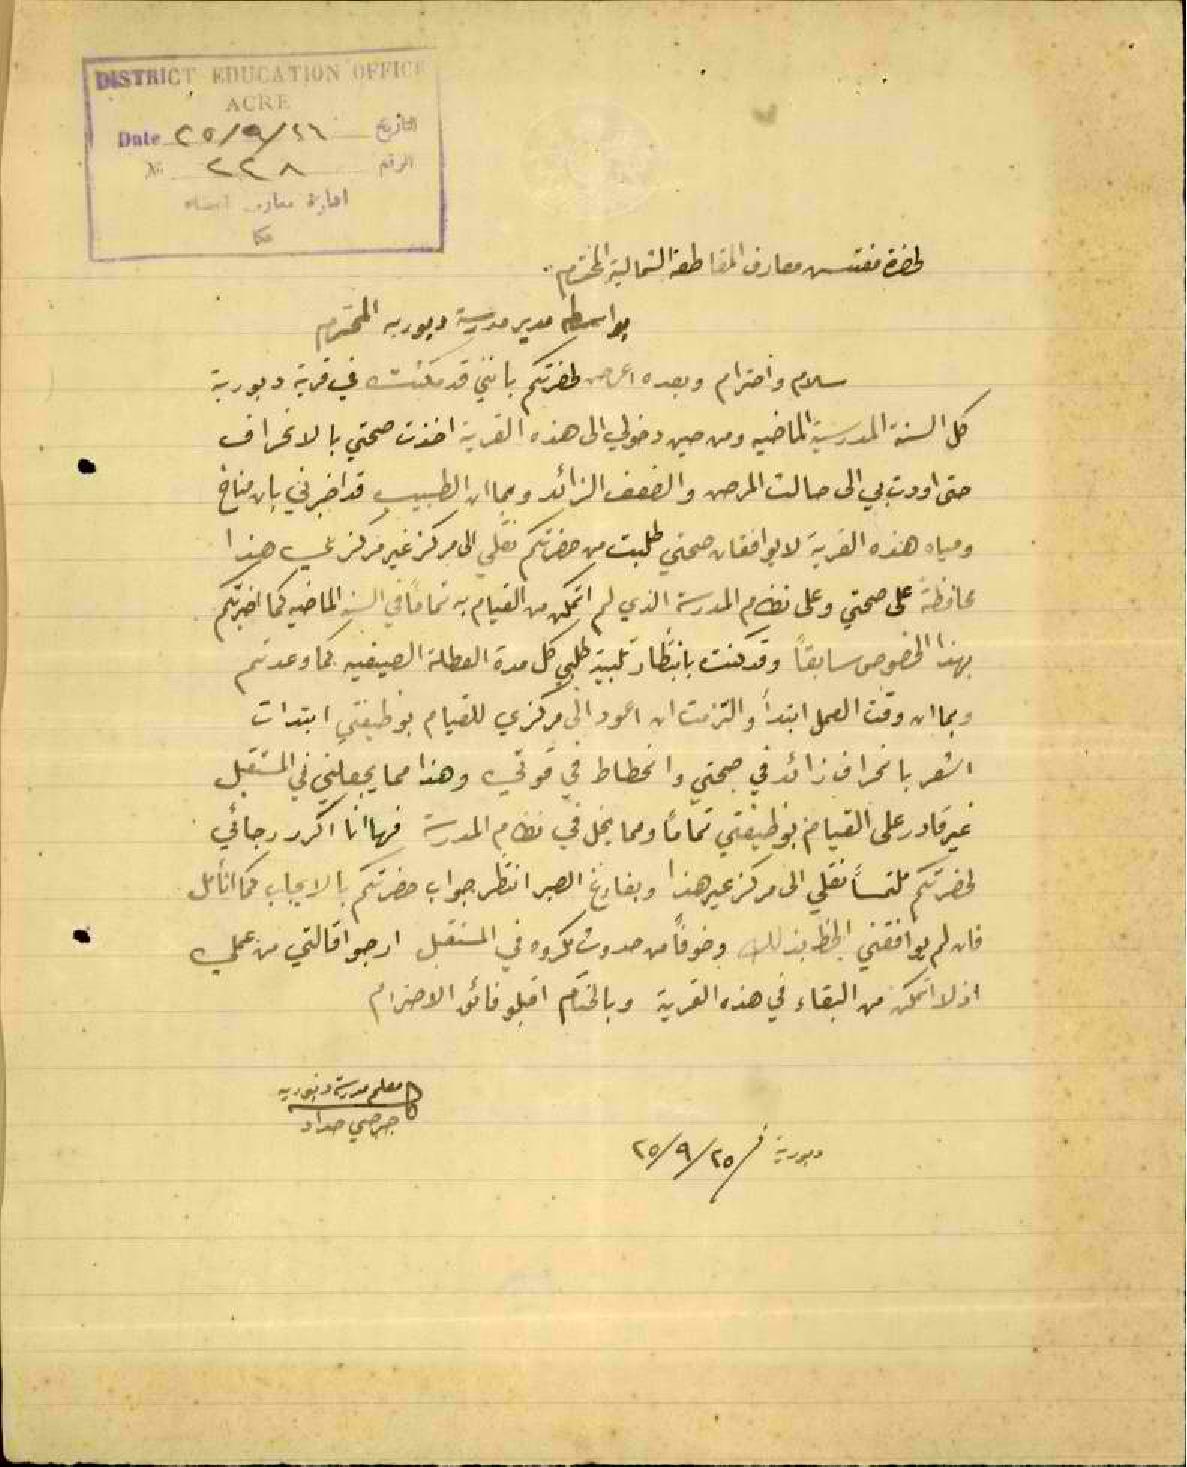 DISTRICT EDUCATION OFFICE
ACRE
Date ٢٥/٩/٢٦ التاريخ
№ ٢٢٨ الرقم
ادارة معارف
عكا
لحضرة مفتش معارف المقاطعة الشمالية المحترم
بواسطة مدير مدرسة دبوريه المحترم
سلام واحترام وبعده اعرض لحضرتكم بانني قد مكثت في قرية دبورية
كل السنة المدرسية الماضيه ومن حين دخولي الى هذه القرية اخذت صحتي بالانحراف
حتى اودت بي الى حالت المرض والضعف الزائد وبما ان الطبيب قد اخبرني بان مناخ
ومياه هذه القرية لا يوافقان صحتي طلبت من حضرتكم نقلي الى مركز غير مركزي هذا
محافظةً على صحتي وعلى نظام المدرسة الذي لم اتمكن من القيام به تماماً في السنه الماضيه كما اخبرتكم
بهذا الخصوص سابقاً وقد كنت بانتظار تلبية طلبي كل مدة العطلة الصيفيه كما وعدتم
وبما ان وقت العمل ابتدأ والتزمت ان اعود الى مركزي للقيام بوظيفتي ابتدات
اشعر بانحراف زائد في صحتي وانحطاط في قوتي وهذا مما يجعلني في المستقبل
غير قادر على القيام بوظيفتي تماماً ومما يخل في نظام المدرسة فها انا اكرر رجائي
لحضرتكم ملتمساً نقلي الى مركز غير هذا وبفارغ الصبر انتظر جواب حضرتكم بالايجاب كما اتأمل
فان لم يوافقني الحظ بذلك وخوفاً من حدوث مكروه في المستقبل ارجو اقالتي من عملي
اذ لا اتمكن من البقاء في هذه القرية وبالختام اقبلو فائق الاحترام
معلم مدرسة دبوريه
جرجي حداد
دبورية في ٢٥/٩/٢٥